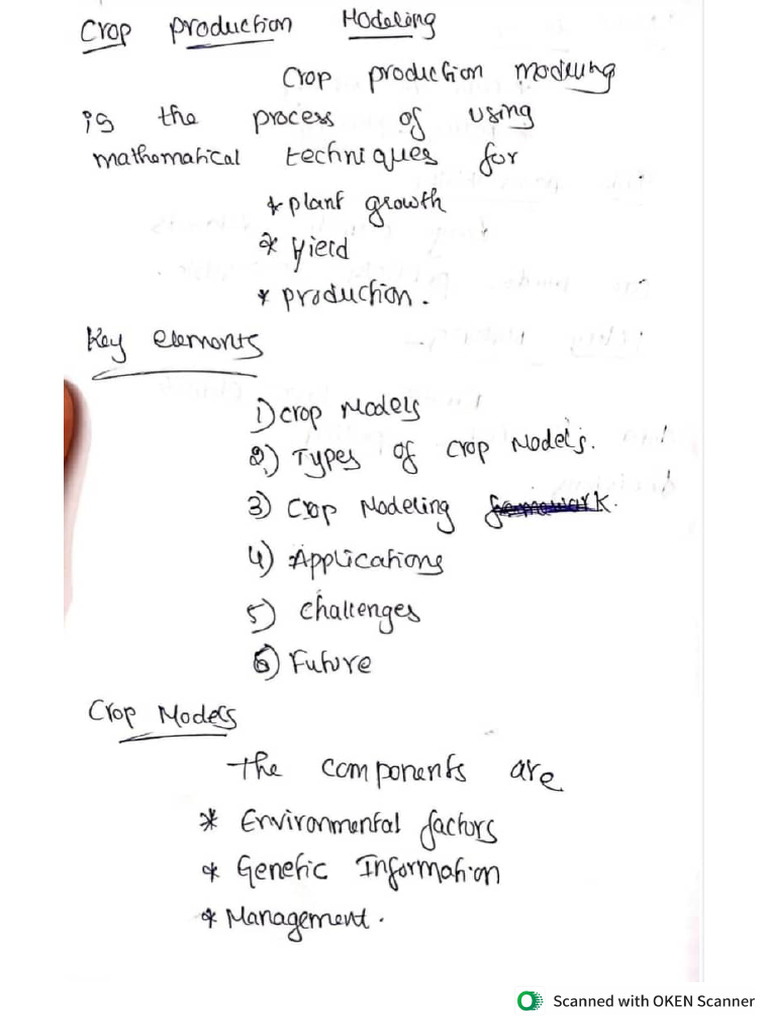 Crop production Modeling
Crop production modeling
is the process of using
mathematical techniques for
* plant growth
* Yield
* production.
Key elements
1) crop Models
2) Types of crop Models.
3) Crop Modeling framework.
4) Applications
5) challenges
6) Future
Crop Models
The components are
* Environmental factors
* Genetic Information
* Management.
Scanned with OKEN Scanner